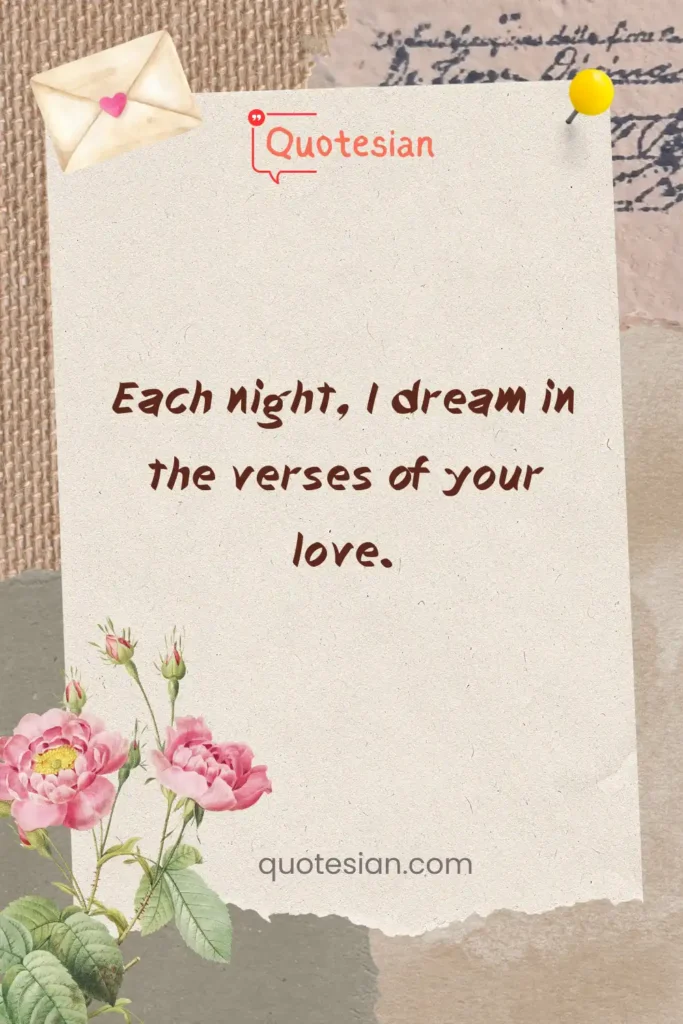 Quotesian
Each night, I dream in
the verses of your
love.
quotesian.com